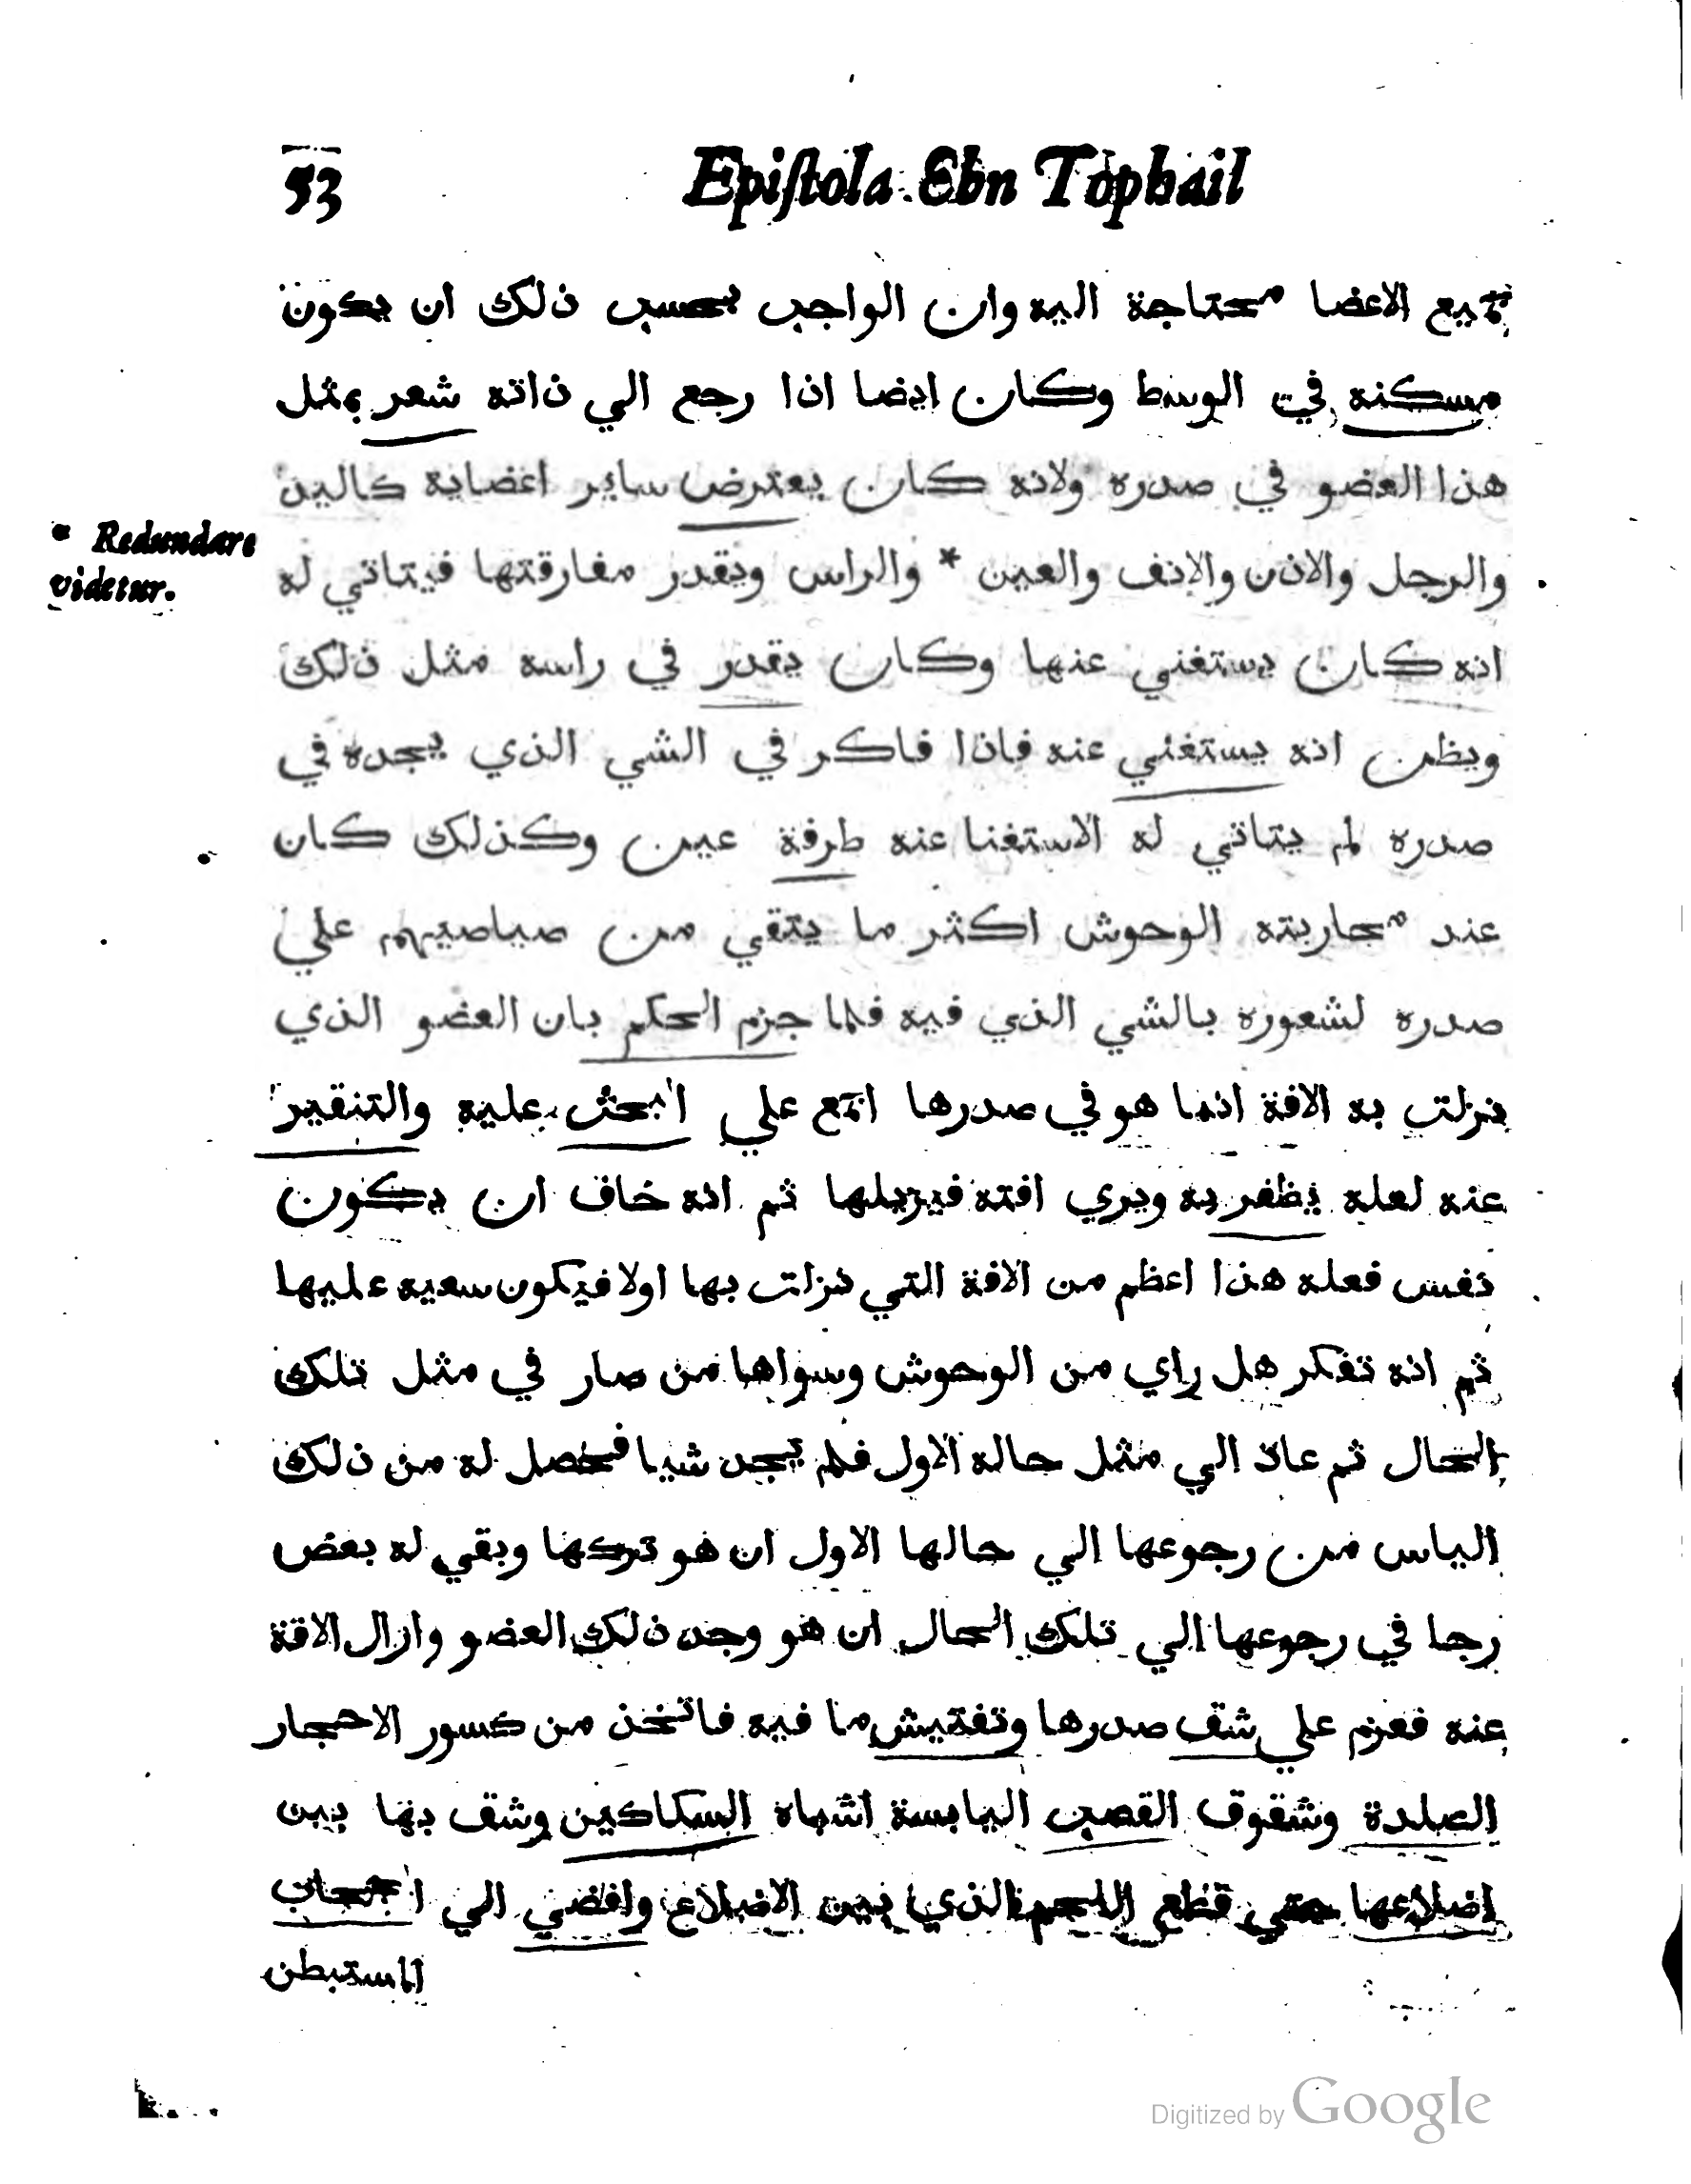 53 Epiſtola Ebn Tophail
جميع الاعضا محتاجة اليه وان الواجب بحسب ذلك ان يكون
مسكنه في الوسط وكان ايضا اذا رجع الي ذاته شعر بمثل
هذا العضو في صدره ولانه كان يعترض ساير اعضايه كاليد
* Redundare videtur.
والرجل والاذن والانف والعين * والراس ويقدر مفارقتها فيتاتي له
انه كان يستغني عنها وكان يقدر في راسه مثل ذلك
ويظن انه يستغني عنه فاذا فاكر في الشي الذي يجده في
صدره لم يتاتي له الاستغنا عنه طرفة عين وكذلك كان
عند محاربته الوحوش اكثر ما يتقي من صياصيهم علي
صدره لشعوره بالشي الذي فيه فلما جزم الحكم بان العضو الذي
نزلت به الافة انما هو في صدرها اجمع علي البحث عليه والتنقير
عنه لعله يظفر به ويري افته فيزيلها ثم انه خاف ان يكون
نفس فعله هذا اعظم من الافة التي نزلت بها اولا فيكون سعيه عليها
ثم انه تفكر هل راي من الوحوش وسواها من صار في مثل تلك
الحال ثم عاد الي مثل حاله الاول فلم يجد شيا فحصل له من ذلك
الياس من رجوعها الي حالها الاول ان هو تركها وبقي له بعض
رجا في رجوعها الي تلك الحال ان هو وجد ذلك العضو وازال الافة
عنه فعزم علي شق صدرها وتفتيش ما فيه فاتخذ من كسور الاحجار
الصلدة وشقوق القصب اليابسة اشباه السكاكين وشق بها بين
اضلاعها حتي قطع اللحم الذي بين الاضلاع وافضي الي الحجاب
المستبطن
Digitized by Google